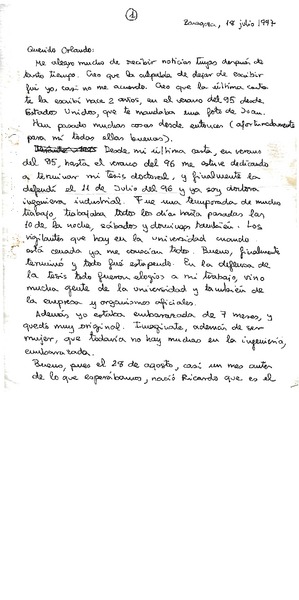 1
Zaragoza, 18 julio 1997
Querido Orlando:
Me alegro mucho de recibir noticias tuyas después de
tanto tiempo. Creo que la culpable de dejar de escribir
fui yo, casi no me acuerdo. Creo que la última carta
te la escribí hace 2 años, en el verano del 95 desde
Estados Unidos, que te mandaba una foto de Juan.
Han pasado muchas cosas desde entonces (afortunadamente
para mí todas ellas buenas).
Desde mi última carta, en verano
del 95, hasta el verano del 96 me estuve dedicando
a terminar mi tesis doctoral, y finalmente la
defendí el 11 de Julio del 96 y ya soy doctora
ingeniera industrial. Fue una temporada de mucho
trabajo, trabajaba todos los días hasta pasadas las
10 de la noche, sábados y domingos también. Los
vigilantes que hay en la universidad cuando
está cerrada ya me conocían todos. Bueno, finalmente
terminó y todo fué estupendo. En la defensa de
la tesis todo fueron elogios a mi trabajo, vino
mucha gente de la universidad y también de
la empresa y organismos oficiales.
Además yo estaba embarazada de 7 meses, y
quedó muy original. Imagínate, además de ser
mujer, que todavía no hay muchas en la ingeniería,
embarazada.
Bueno, pues el 28 de agosto, casi un mes antes
de lo que esperábamos, nació Ricardo que es el